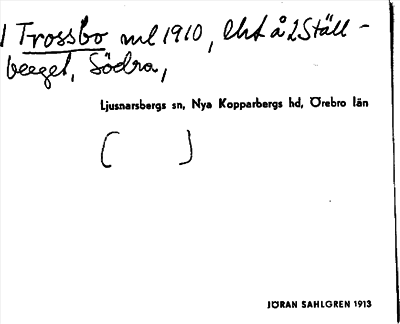 1 Trossbo ml 1910, lht å 2 Ställ-
berget, Södra,
Ljusnarsbergs sn, Nya Kopparbergs hd, Örebro län
( )
JÖRAN SAHLGREN 1913